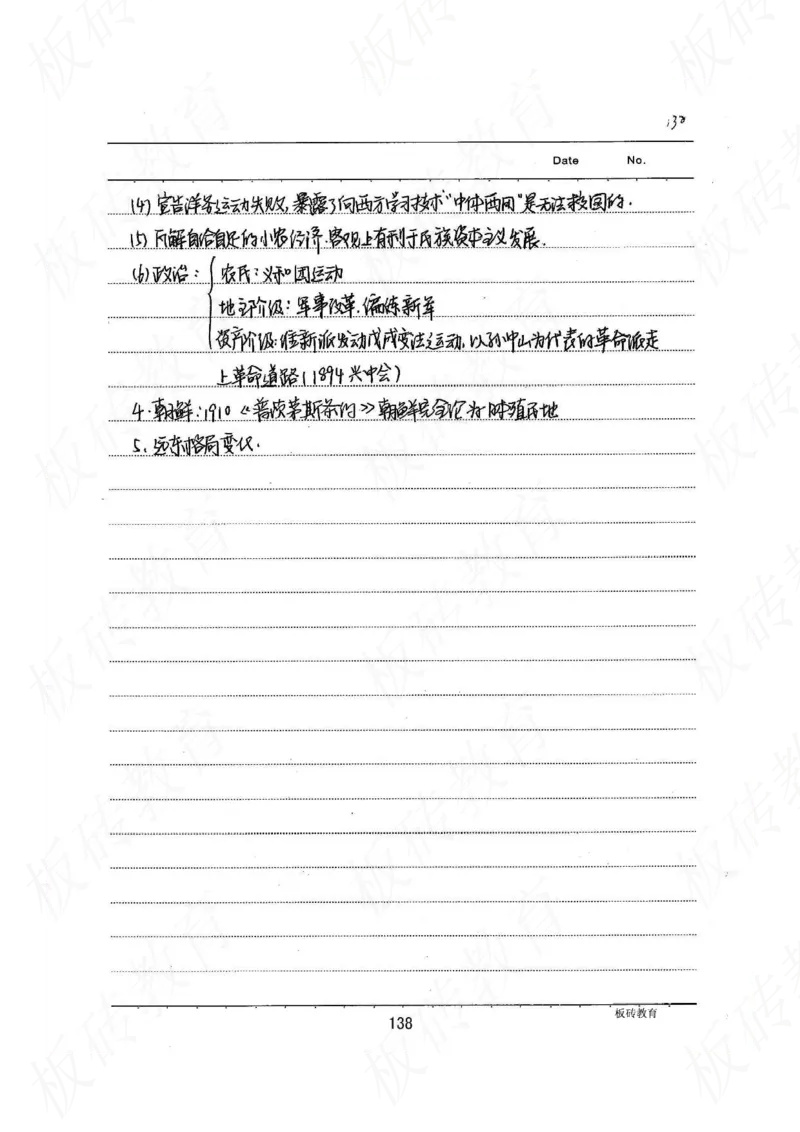 138
Date No.
(4) 宣告洋务运动失败,暴露了向西方学习技术"中体西用"是无法救国的.
(5) 瓦解自给自足的小农经济.客观上有利于民族资本主义发展.
(6) 政治: 农民:义和团运动
地主阶级:军事改革.编练新军
资产阶级:维新派发动戊戌变法运动,以孙中山为代表的革命派走
上革命道路(1894兴中会)
4.朝鲜:1910《普茨茅斯条约》朝鲜完全沦为日本殖民地
5.远东格局变化.
138
板砖教育